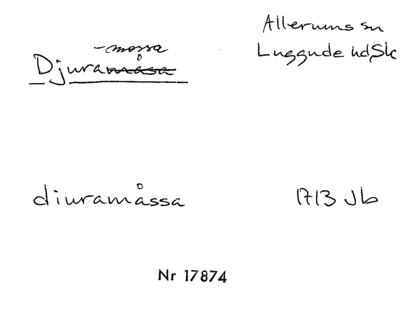 -mossa
Djuramåsa
Allerums sn
Luggude hd, Sk
diuramåssa
1713 Jb
Nr 17874